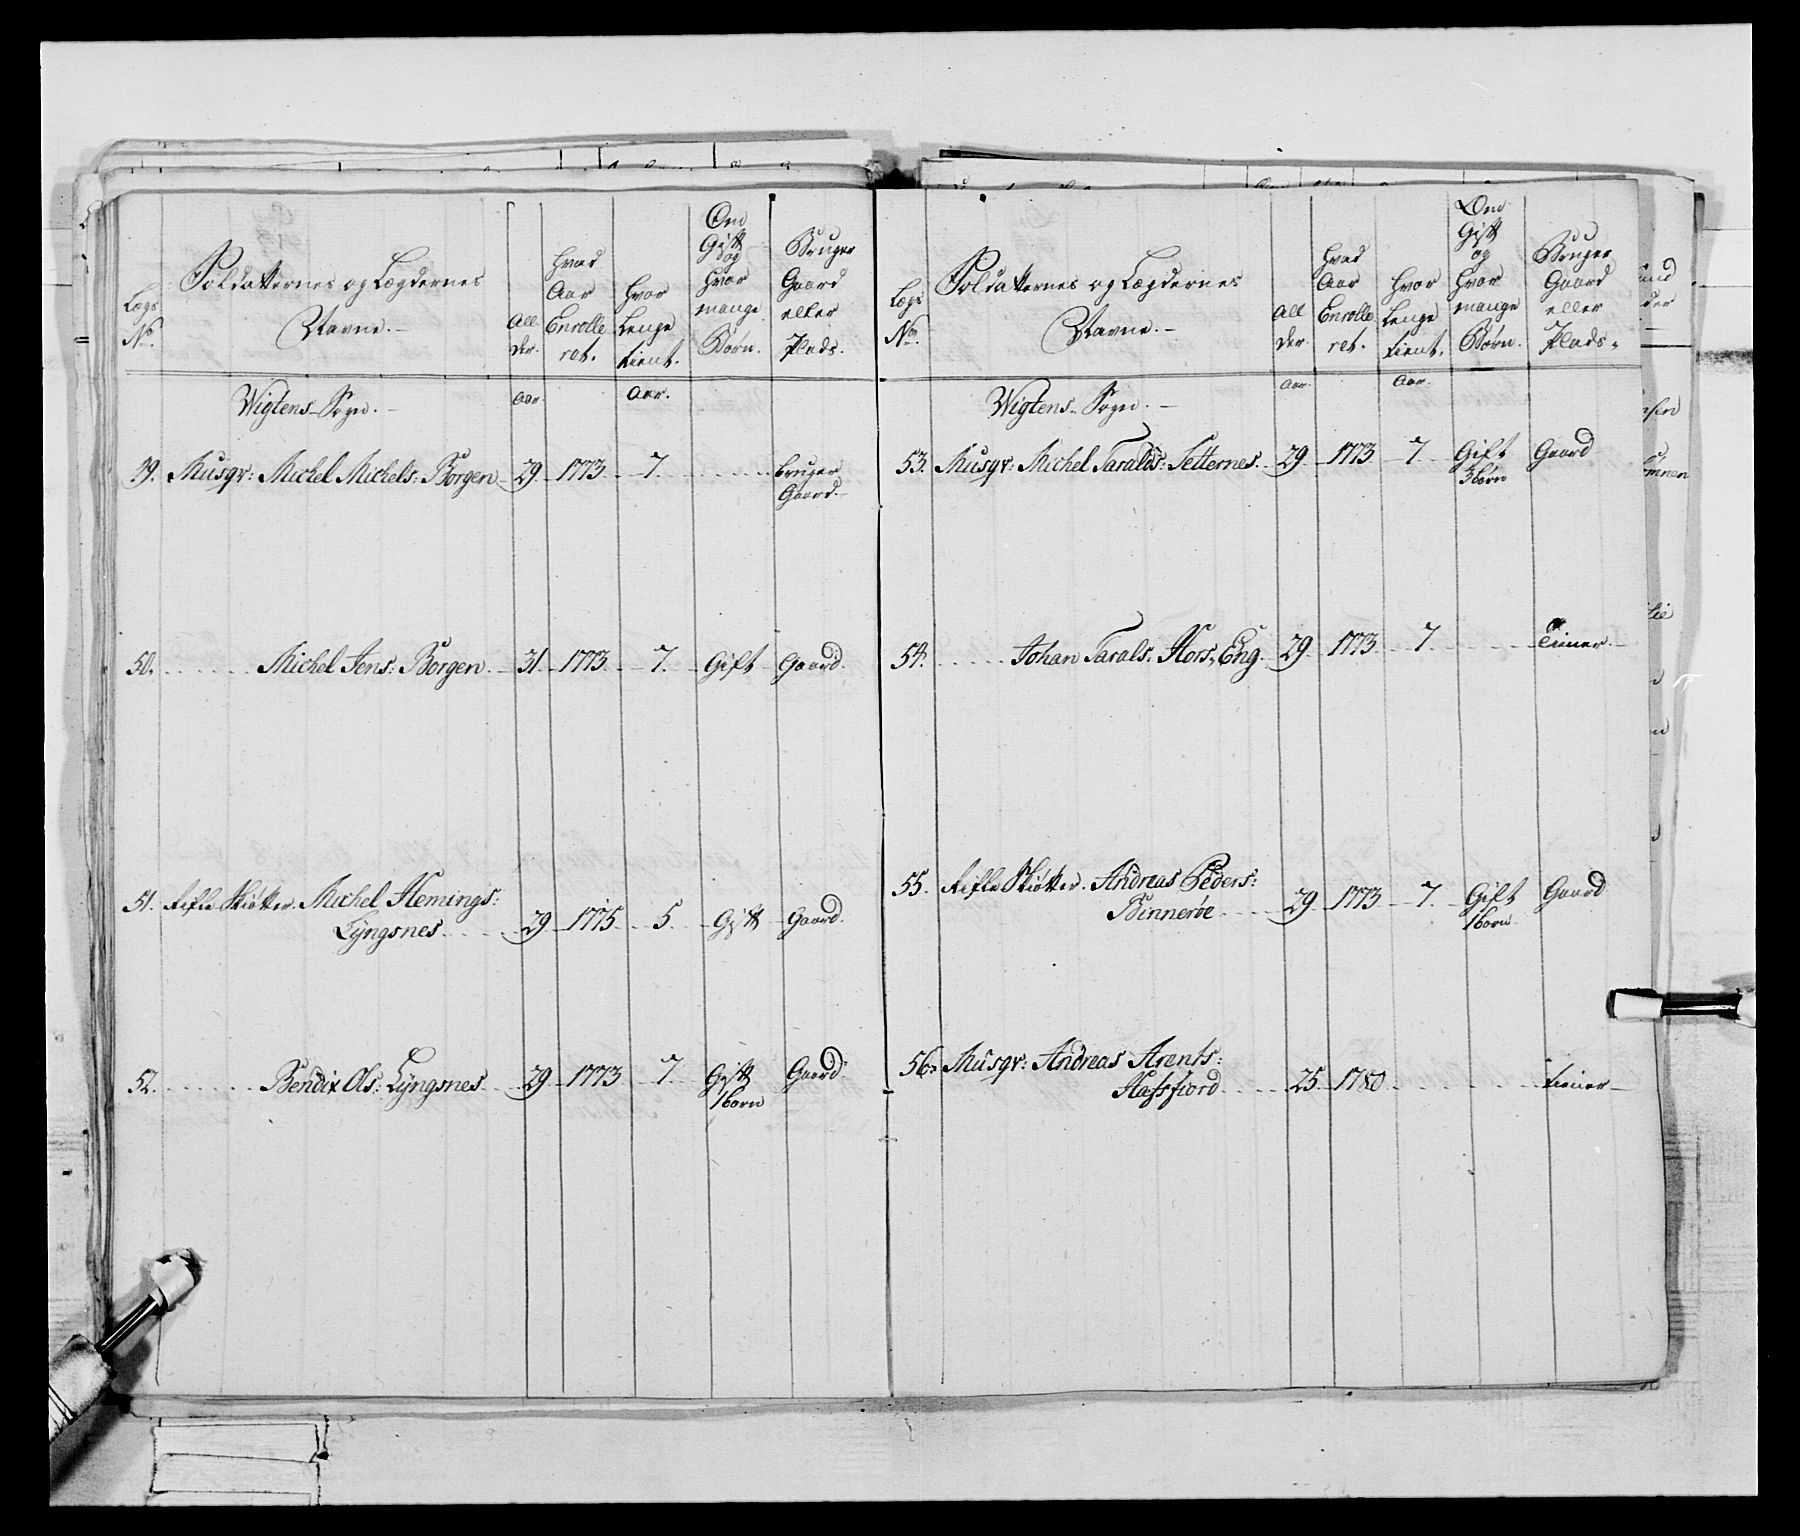 Lægs No.
Soldatternes og Lægdernes Navne.
All der.
Hvad Aar Enrolle ret.
Hvor Lenge tient.
Om Gift og Hvor mange Børn.
Bruger Gaard eller Plads.
Wigtens Sogn. Aar. Aar.
49. Musqr: Michel Michels: Borgen 29 1773 7. bruger
Gaard.
50. Michel Jens: Borgen. 31. 1773. 7. Gift Gaard.
51. Riffle Skiøtter. Michel Hemings:
Lÿngsnes 29 1775 5. Gift Gaard.
52. Bendix Ols: Lÿngsnes 29 1773 7 Gift Gaard
1 barn
Lægs No.
Soldatternes og Lægdernes Navne.
All der.
Hvad Aar Enrolle ret.
Hvor Lenge tient.
Om Gift og Hvor mange Børn.
Bruger Gaard eller Plads.
Wigtens Sogn. Aar. Aar.
53. Musqr: Michel Taralds: Setternes. 29. 1773 7 Gift Gaard
3 børn
54. Johan Tarals. Hors, Eng. 29. 1773. 7. Tiener.
55. Riffle Skiøtter. Andreas Peders:
Binnerøe 29. 1773 7. Gift Gaard
1 barn
56. Musqr: Andreas Arents:
Hafsfiord 25. 1780 tiener